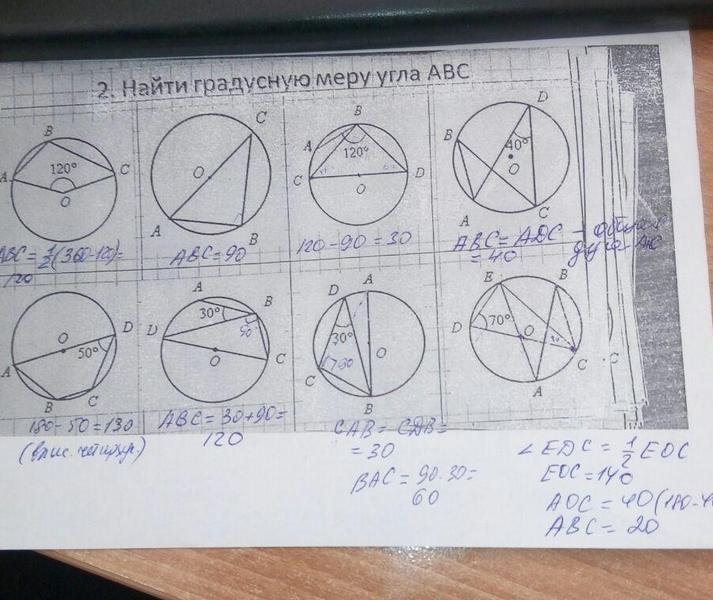 2. Найти градусную меру угла ABC
B
A
120°
C
O
ABC = 1/2(360-120)=
120
C
O
A
B
ABC = 90
B
A
120°
C
D
O
120-90=30
D
B
40°
O
A
C
ABC = ADC - общая
= 40 дуга AC
O
D
50°
A
B
C
180-50=130
(впис. четыр.)
A
B
30°
90
D
O
C
ABC = 30+90=
120
D
A
30°
O
C
B
CAB = CDB =
= 30
BAC = 90-30=
60
E
B
D
70°
O
C
C
A
∠EDC = 1/2 EOC
EOC = 140
AOC = 40 (180-
ABC = 20